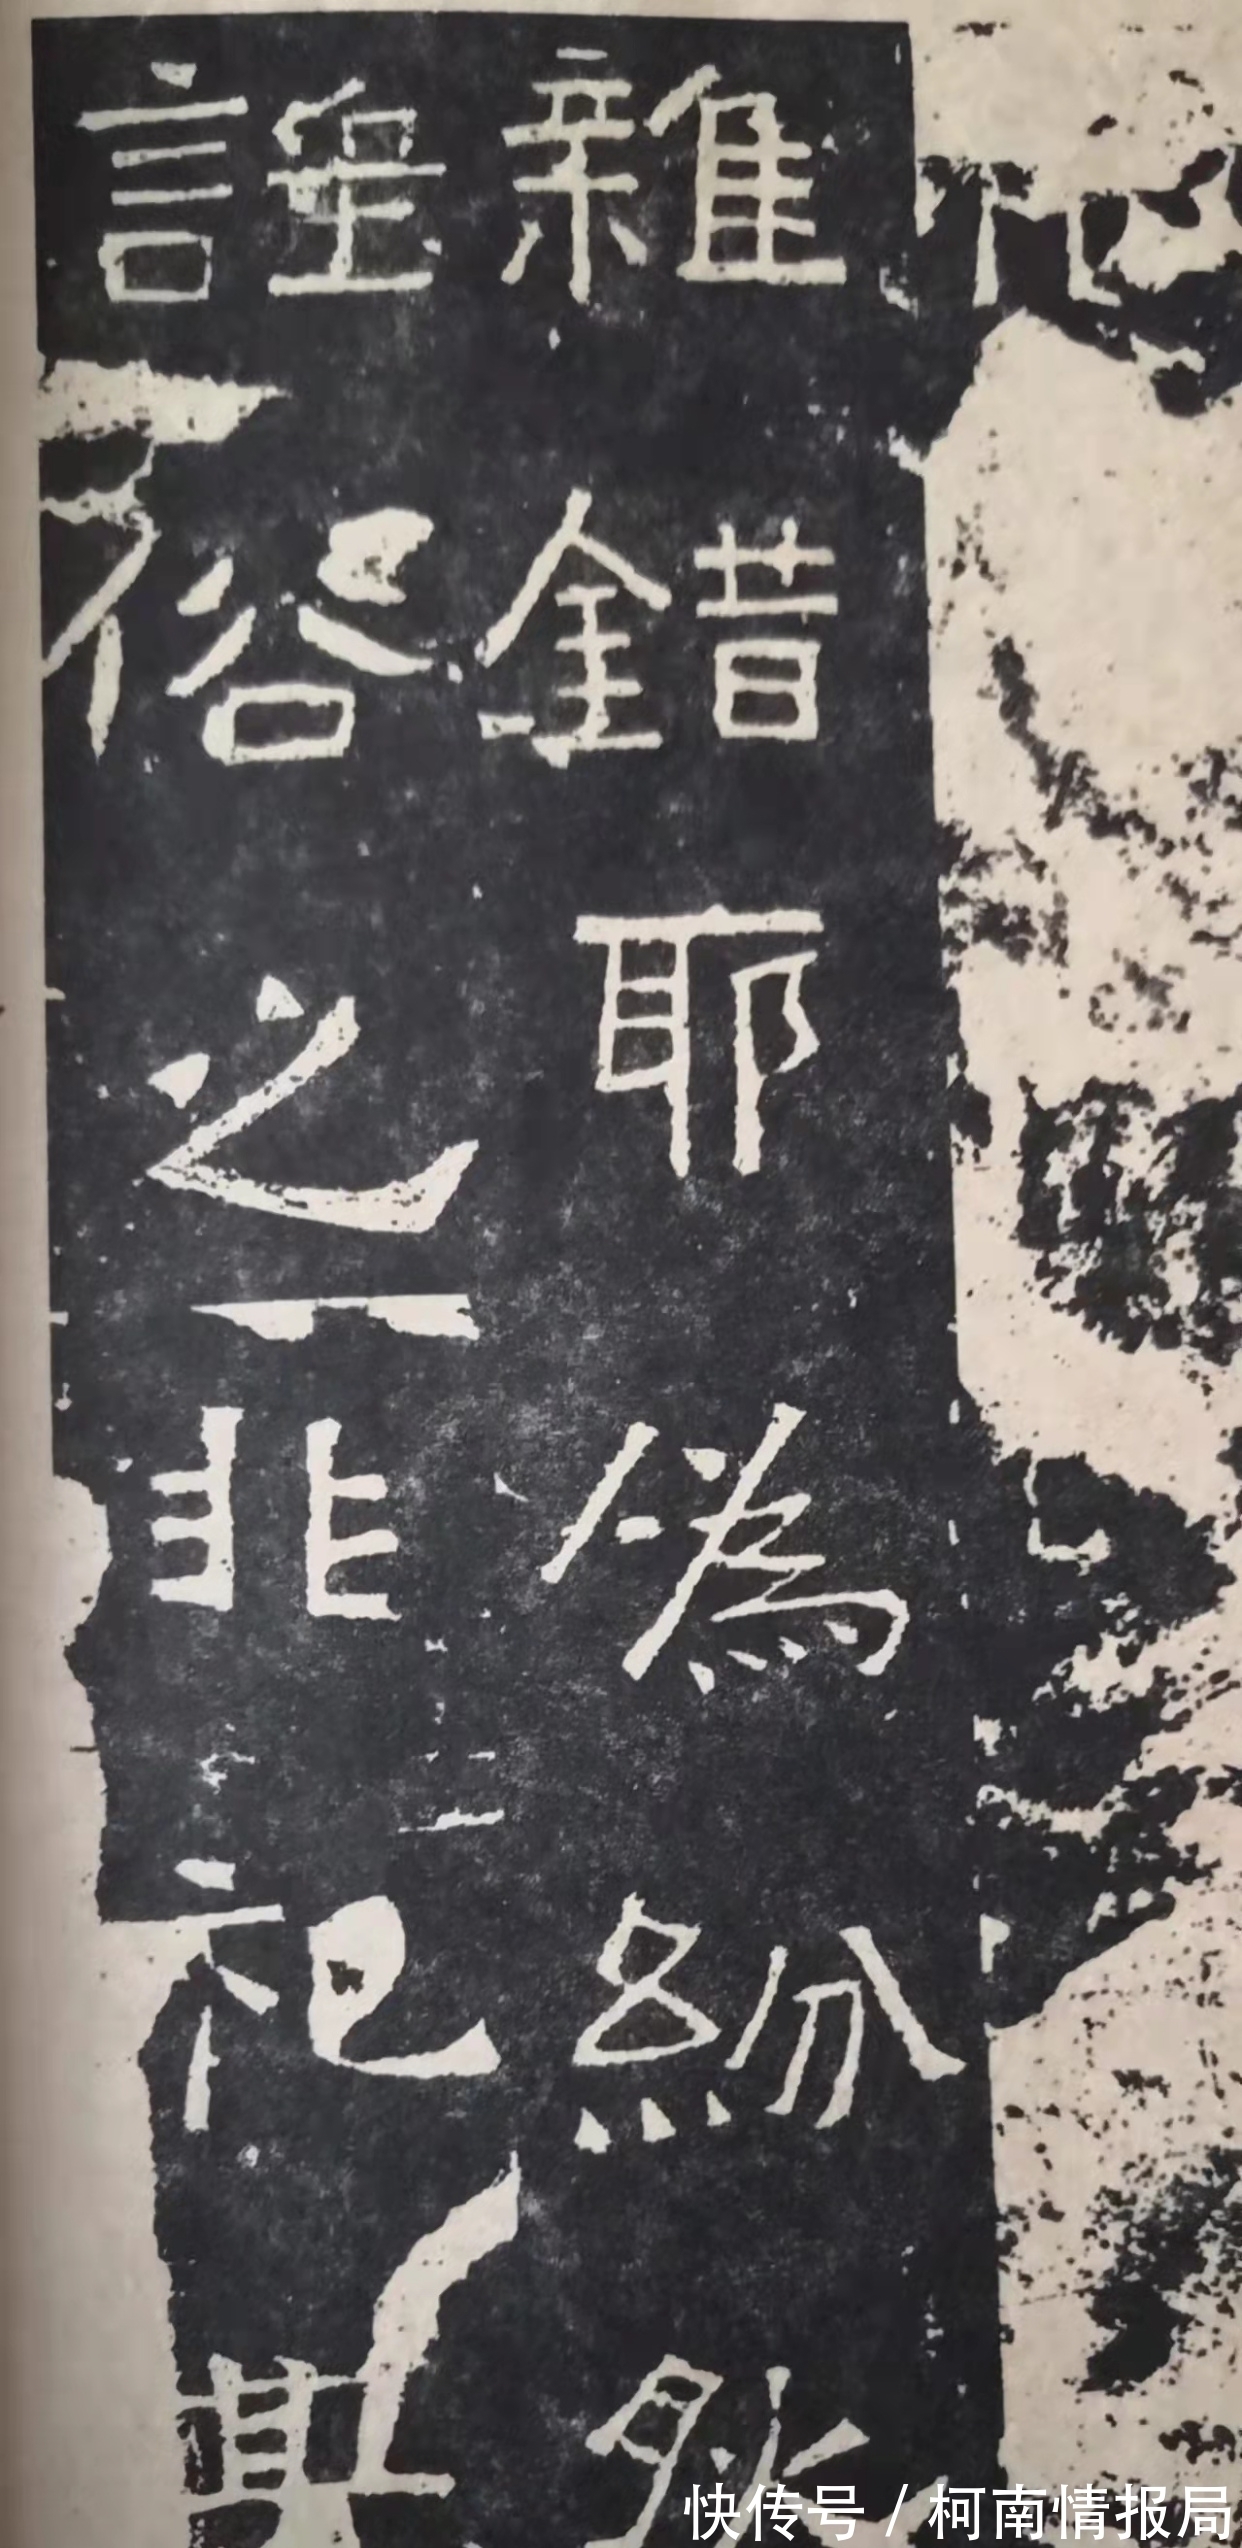 雜錯耶偽紛然
謠俗之非祀典
快传号/柯南情报局